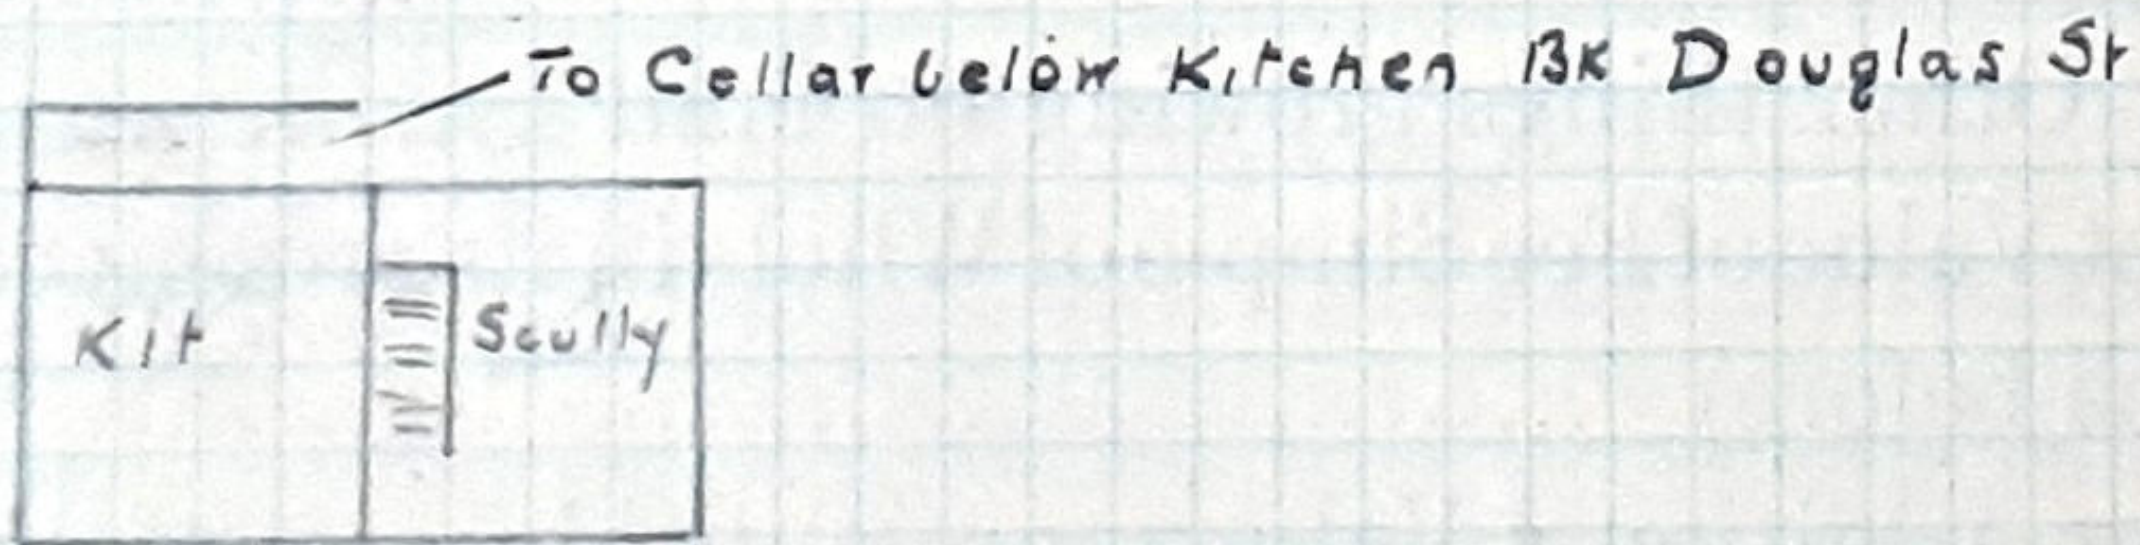 To Cellar below Kitchen BK Douglas St
Kit
Scully